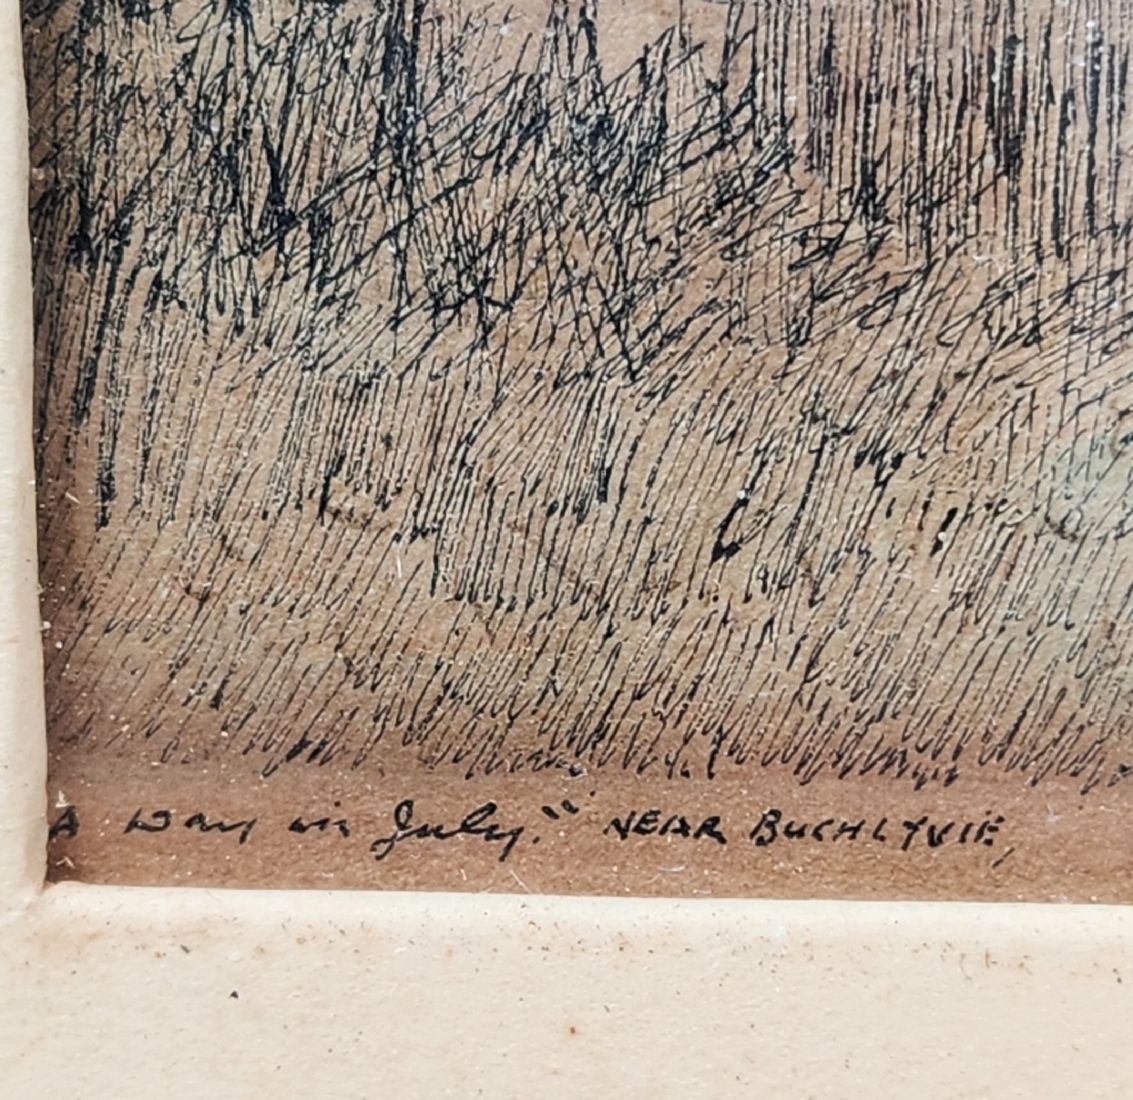 A Day in July." NEAR BUCHLYVIE,